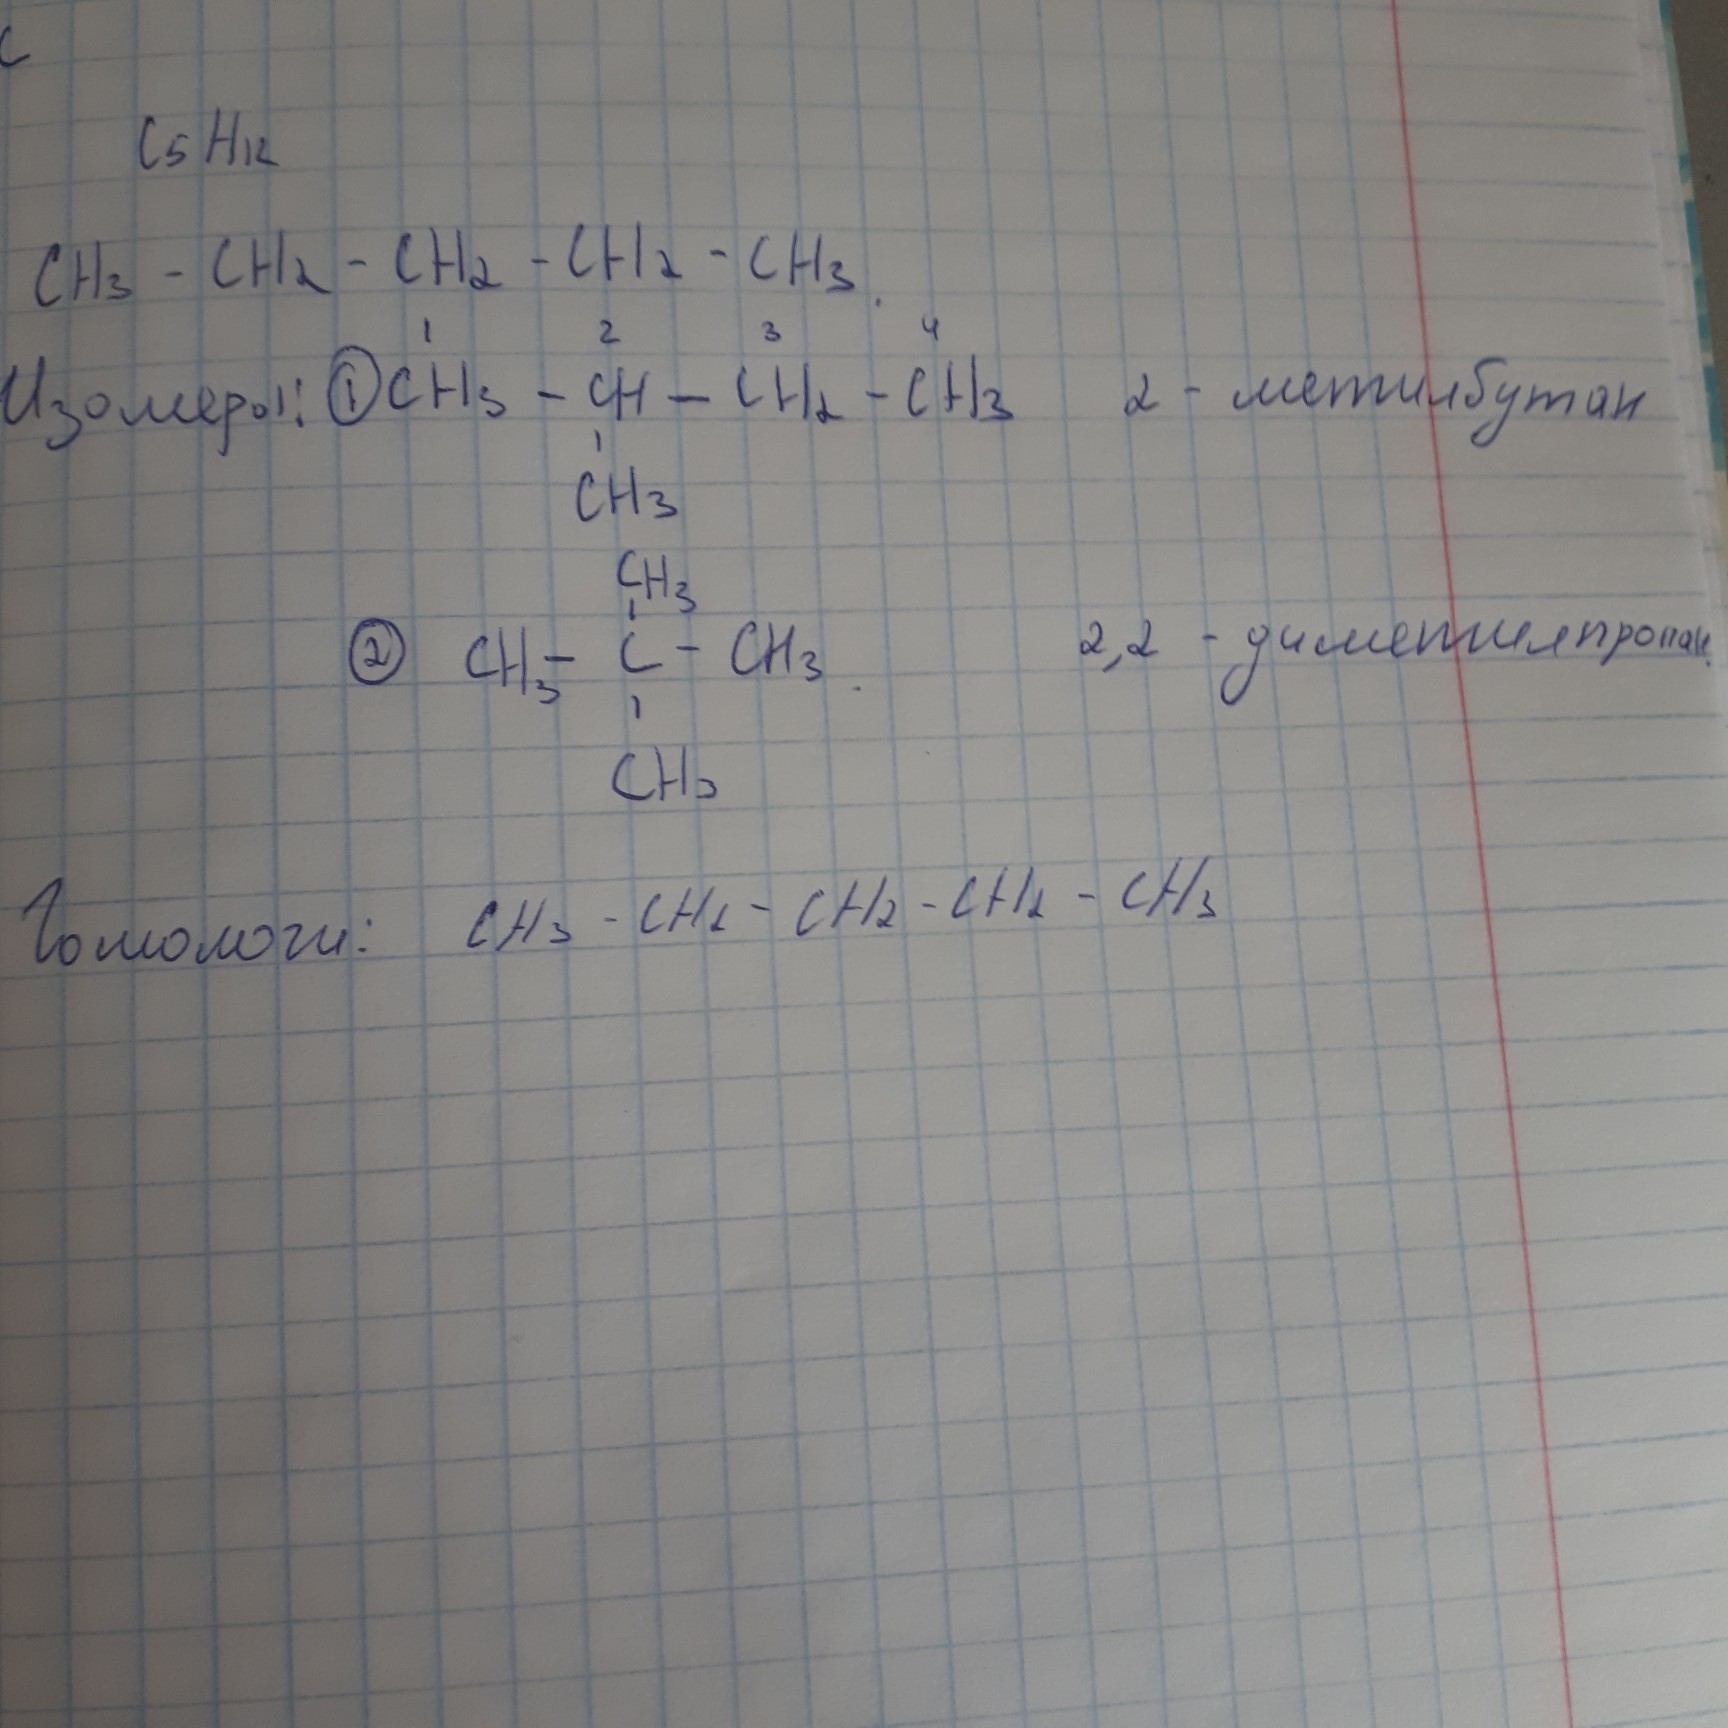 C
C5H12
CH3 - CH2 - CH2 - CH2 - CH3.
1 2 3 4
Изомеры: ① CH3 - CH - CH2 - CH3 2 - метилбутан
CH3
CH3
② CH3 - C - CH3. 2,2 - диметилпропан.
CH3
Гомологи: CH3 - CH2 - CH2 - CH2 - CH3